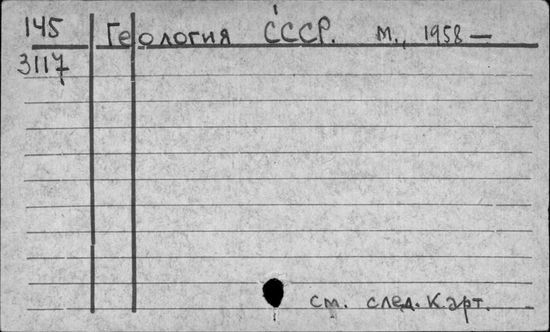 145 Геология СССР. М., 1958 —
3117
см. след. карт.